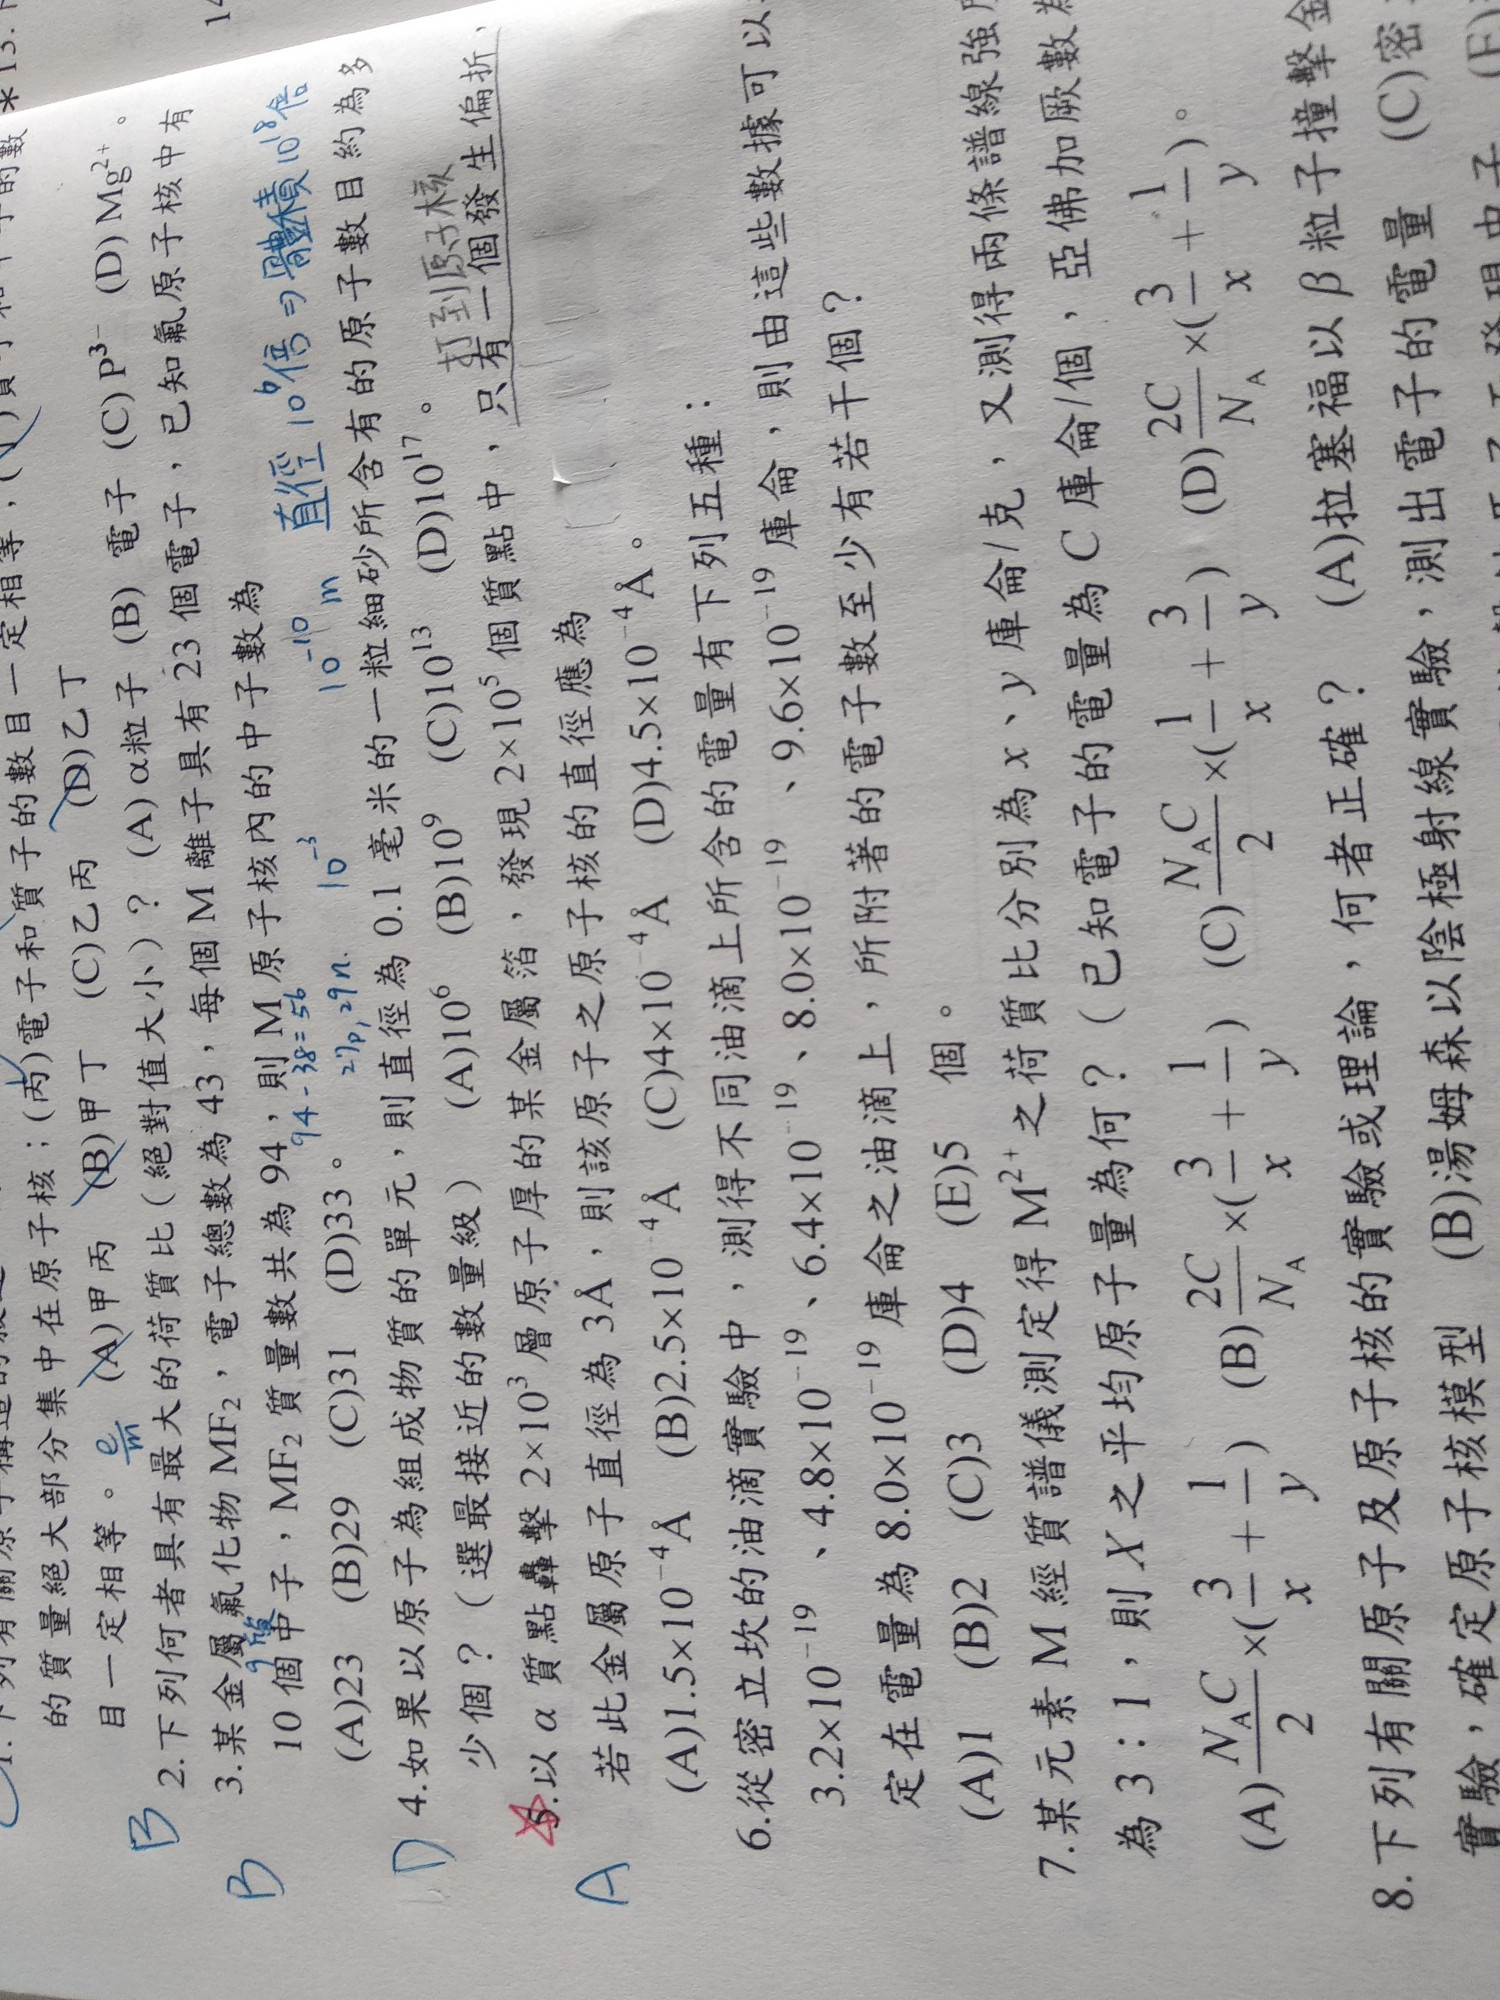 的質量絕大部分集中在原子核；(丙)電子和質子的數目一定相等，(
目一定相等。 (A)甲丙 (B)甲丁 (C)乙丙 (D)乙丁
e/m
B
2.下列何者具有最大的荷質比（絕對值大小）？ (A)α粒子 (B) 電子 (C) P³⁻ (D) Mg²⁺。
3.某金屬氟化物MF₂，電子總數為 43，每個 M 離子具有 23 個電子，已知氟原子核中有
B
10 個中子，MF₂質量數共為 94，則 M 原子核內的中子數為
94-38=56
直徑 10⁶倍 ⇒ 體積10¹⁸倍
(A)23 (B)29 (C)31 (D)33。
27p, 29n.
10⁻³
10⁻¹⁰ m
D
4.如果以原子為組成物質的單元，則直徑為 0.1 毫米的一粒細砂所含有的原子數目約為多
少個？（選最接近的數量級） (A)10⁶ (B)10⁹ (C)10¹³ (D)10¹⁷。
打到原子核
5.以 α 質點轟擊 2×10³ 層原子厚的某金屬箔，發現 2×10⁵ 個質點中，只有一個發生偏折，
A
若此金屬原子直徑為 3Å，則該原子之原子核的直徑應為
(A)1.5×10⁻⁴Å (B)2.5×10⁻⁴Å (C)4×10⁻⁴Å (D)4.5×10⁻⁴Å。
6.從密立坎的油滴實驗中，測得不同油滴上所含的電量有下列五種：
3.2×10⁻¹⁹、4.8×10⁻¹⁹、6.4×10⁻¹⁹、8.0×10⁻¹⁹、9.6×10⁻¹⁹ 庫侖，則由這些數據可以
定在電量為 8.0×10⁻¹⁹ 庫侖之油滴上，所附著的電子數至少有若干個？
(A)1 (B)2 (C)3 (D)4 (E)5 個。
7.某元素 M 經質譜儀測定得 M²⁺ 之荷質比分別為 x、y 庫侖/克，又測得兩條譜線強
為 3：1，則 X 之平均原子量為何？（已知電子的電量為 C 庫侖/個，亞佛加厥數
(A) NAC/2 ×(3/x + 1/y) (B) 2C/NA ×(3/x + 1/y) (C) NAC/2 ×(1/x + 3/y) (D) 2C/NA ×(3/x + 1/y)。
8.下列有關原子及原子核的實驗或理論，何者正確？ (A)拉塞福以 β 粒子撞擊金
實驗，確定原子核模型 (B)湯姆森以陰極射線實驗，測出電子的電量 (C)密